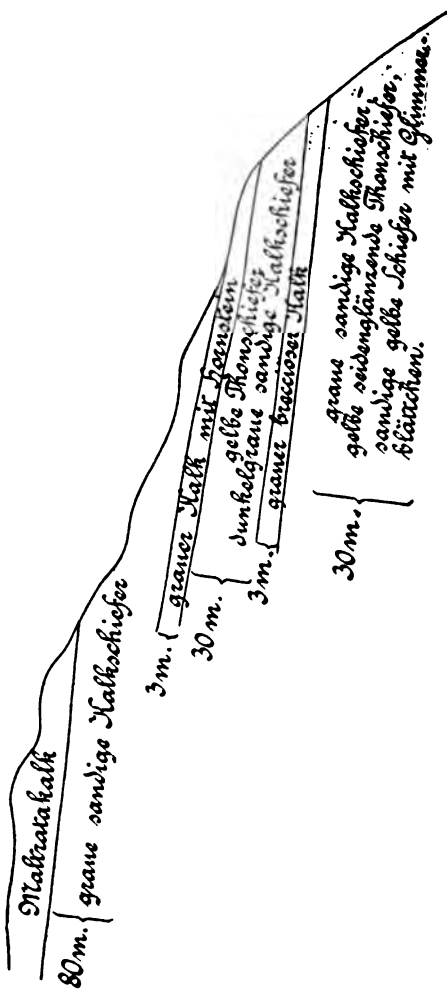 Maltratakalk
80m. graue sandige Kalkschiefer
3m. grauer Kalk mit Hornstein
30m. gelbe Thonschiefer
dunkelgraue sandige Kalkschiefer
3m. grauer brecciöser Kalk
30m. graue sandige Kalkschiefer,
gelbe seidenglänzende Thonschiefer,
sandige gelbe Schiefer mit Glimmer-
blättchen.